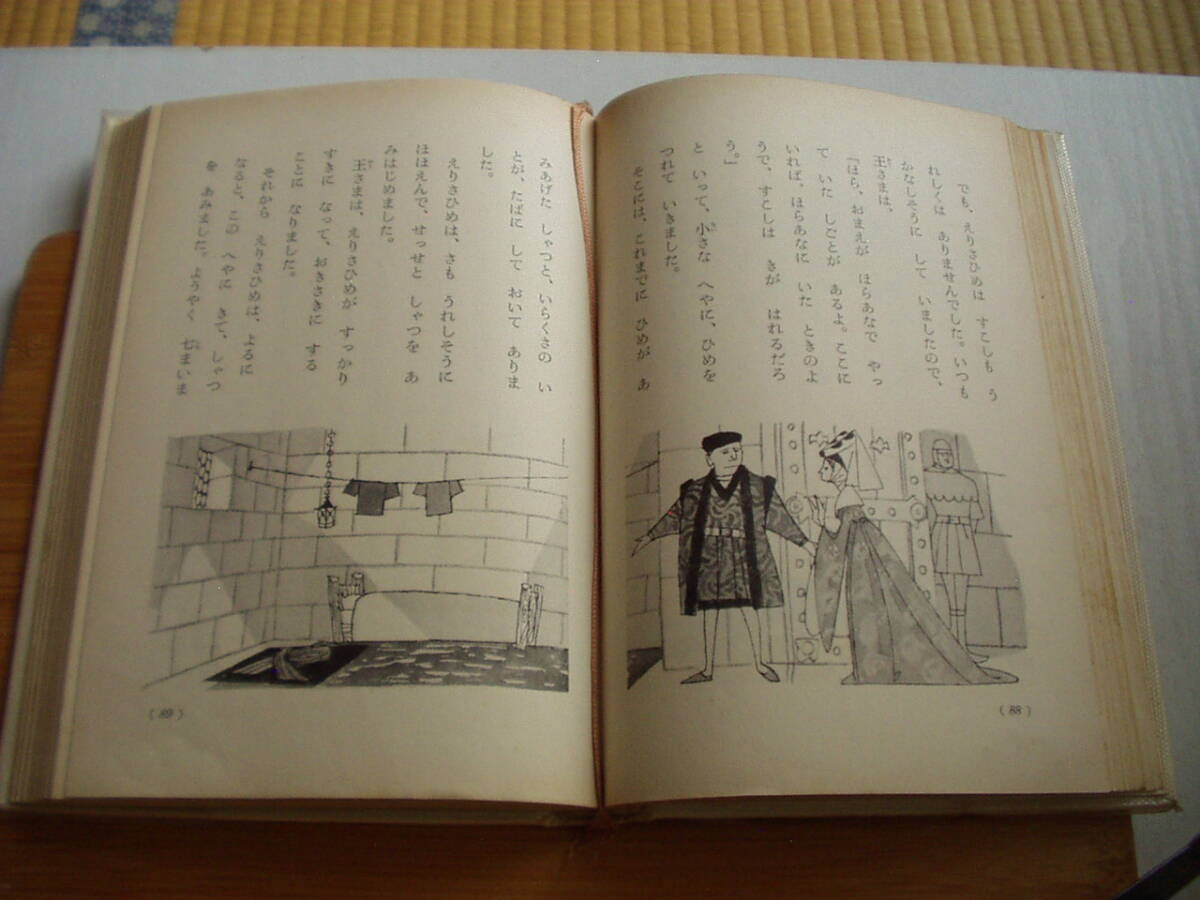 でも、えりさひめは すこしも う
れしくは ありませんでした。いつも
かなしそうに して いましたので、
王さまは、
「ほら、おまえが ほらあなで やっ
て いた しごとが あるよ。ここに
いれば、ほらあなに いた ときのよ
うで、すこしは きが はれるだろ
う。」
と いって、小さな へやに、ひめを
つれて いきました。
そこには、これまでに ひめが あ
(88)
みあげた しゃつと、いらくさの い
とが、たばに して おいて ありま
した。
えりさひめは、さも うれしそうに
ほほえんで、せっせと しゃつを あ
みはじめました。
王さまは、えりさひめが すっかり
すきに なって、おきさきに する
ことに なりました。
それから えりさひめは、よるに
なると、この へやに きて、しゃつ
を あみました。ようやく 七まいま
(89)